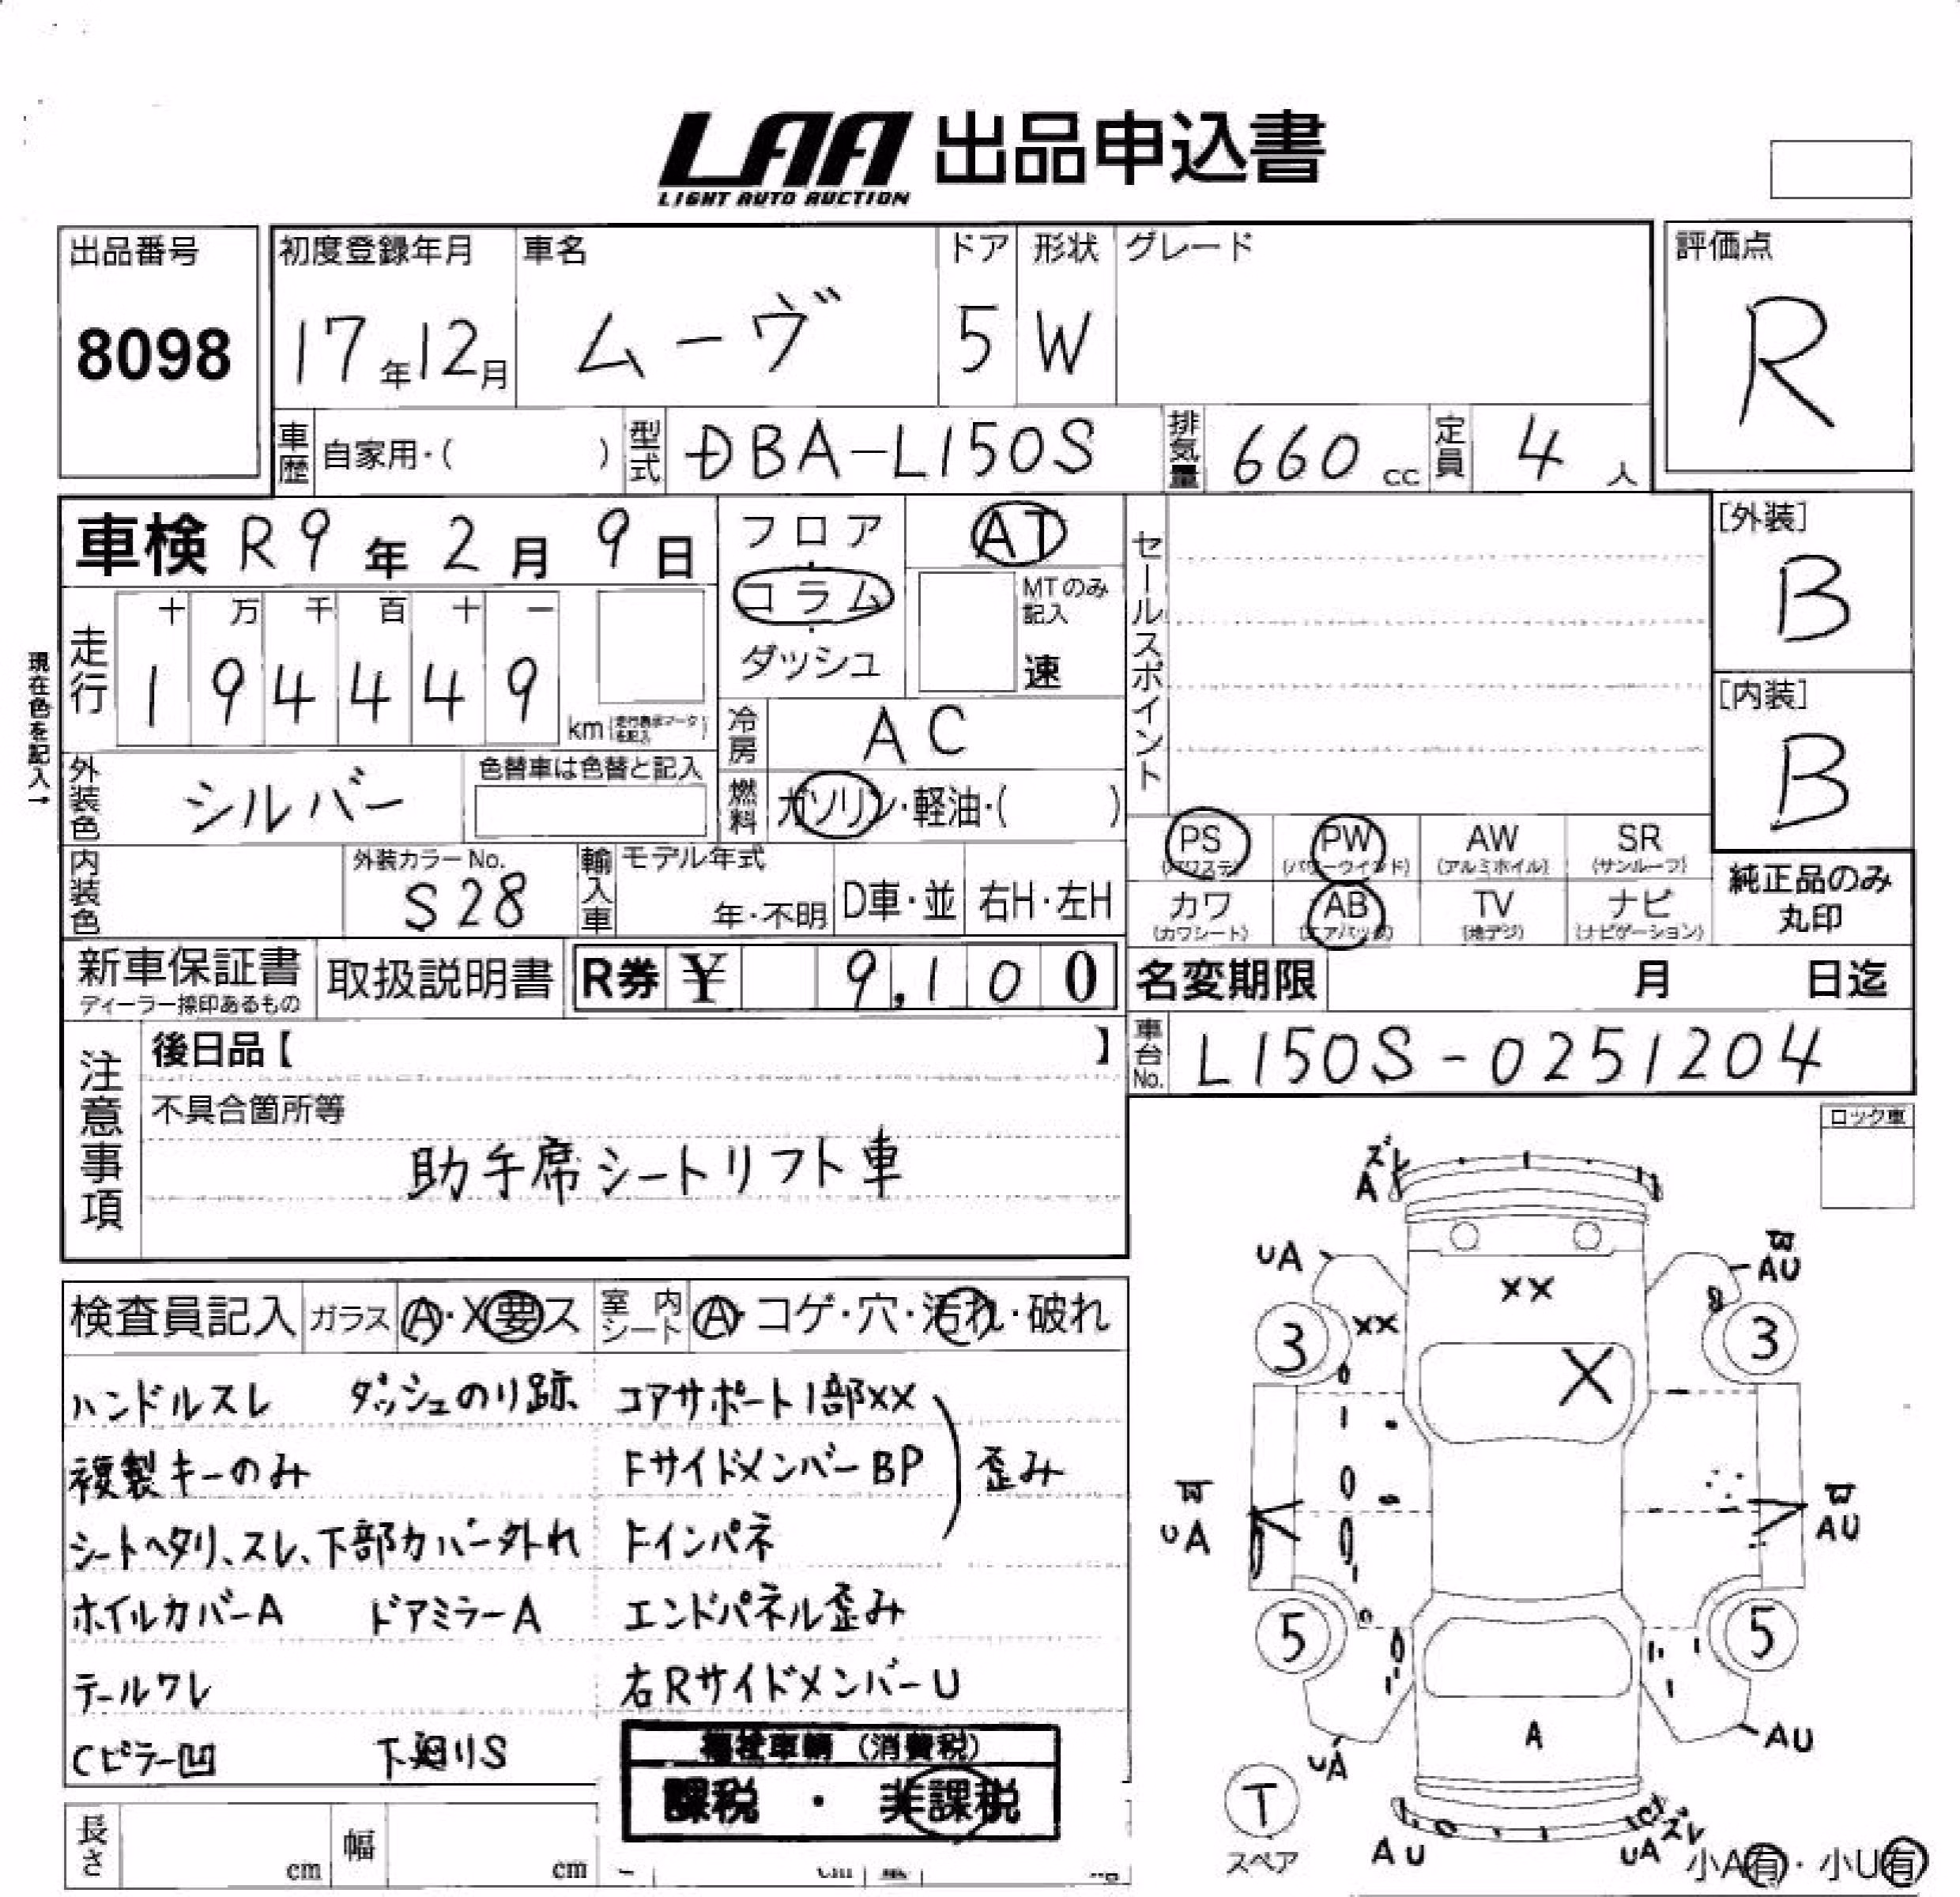 LAA 出品申込書
LIGHT AUTO AUCTION
出品番号
8098
初度登録年月
17年12月
車名
ムーヴ
ドア
5
形状
W
グレード
評価点
R
車歴 自家用・( )
型式 DBA-L150S
排気量 660 cc
定員 4 人
車検 R9年2月9日
フロア
コラム
ダッシュ
AT
MTのみ
記入
速
セールスポイント
[外装]
B
[内装]
B
現在色を記入→
走行
十 万 千 百 十 一
1 9 4 4 4 9
km
冷房 AC
燃料 ガソリン・軽油・( )
外装色 シルバー
色替車は色替と記入
内装色
外装カラーNo.
S28
輸入車
モデル年式
年・不明
D車・並
右H・左H
PS
(パワステ)
PW
(パワーウインド)
AW
(アルミホイル)
SR
(サンルーフ)
カワ
(カワシート)
AB
(エアバッグ)
TV
(地デジ)
ナビ
(ナビゲーション)
純正品のみ
丸印
新車保証書
ディーラー捺印あるもの
取扱説明書
R券 ¥ 9,100
名変期限 月 日迄
車台No. L150S-0251204
注意事項
後日品【 】
不具合箇所等
助手席シートリフト車
ロック車
検査員記入
ガラス A・X要ス
室内シート A・コゲ・穴・汚れ・破れ
ハンドルスレ ダッシュのり跡
複製キーのみ
シートヘタリ、スレ、下部カバー外れ
ホイルカバーA ドアミラーA
テールワレ
Cピラー凹 下廻りS
コアサポート1部XX
FサイドメンバーBP
歪み
Fインパネ
エンドパネル歪み
右RサイドメンバーU
福祉車輌 (消費税)
課税 ・ 非課税
長さ cm
幅 cm
ズレ
A
UA
AU
XX
XX
3
3
X
UA
AU
5
5
A
UA
AU
T
スペア
AU
UA
ズレ
小A有・小U有